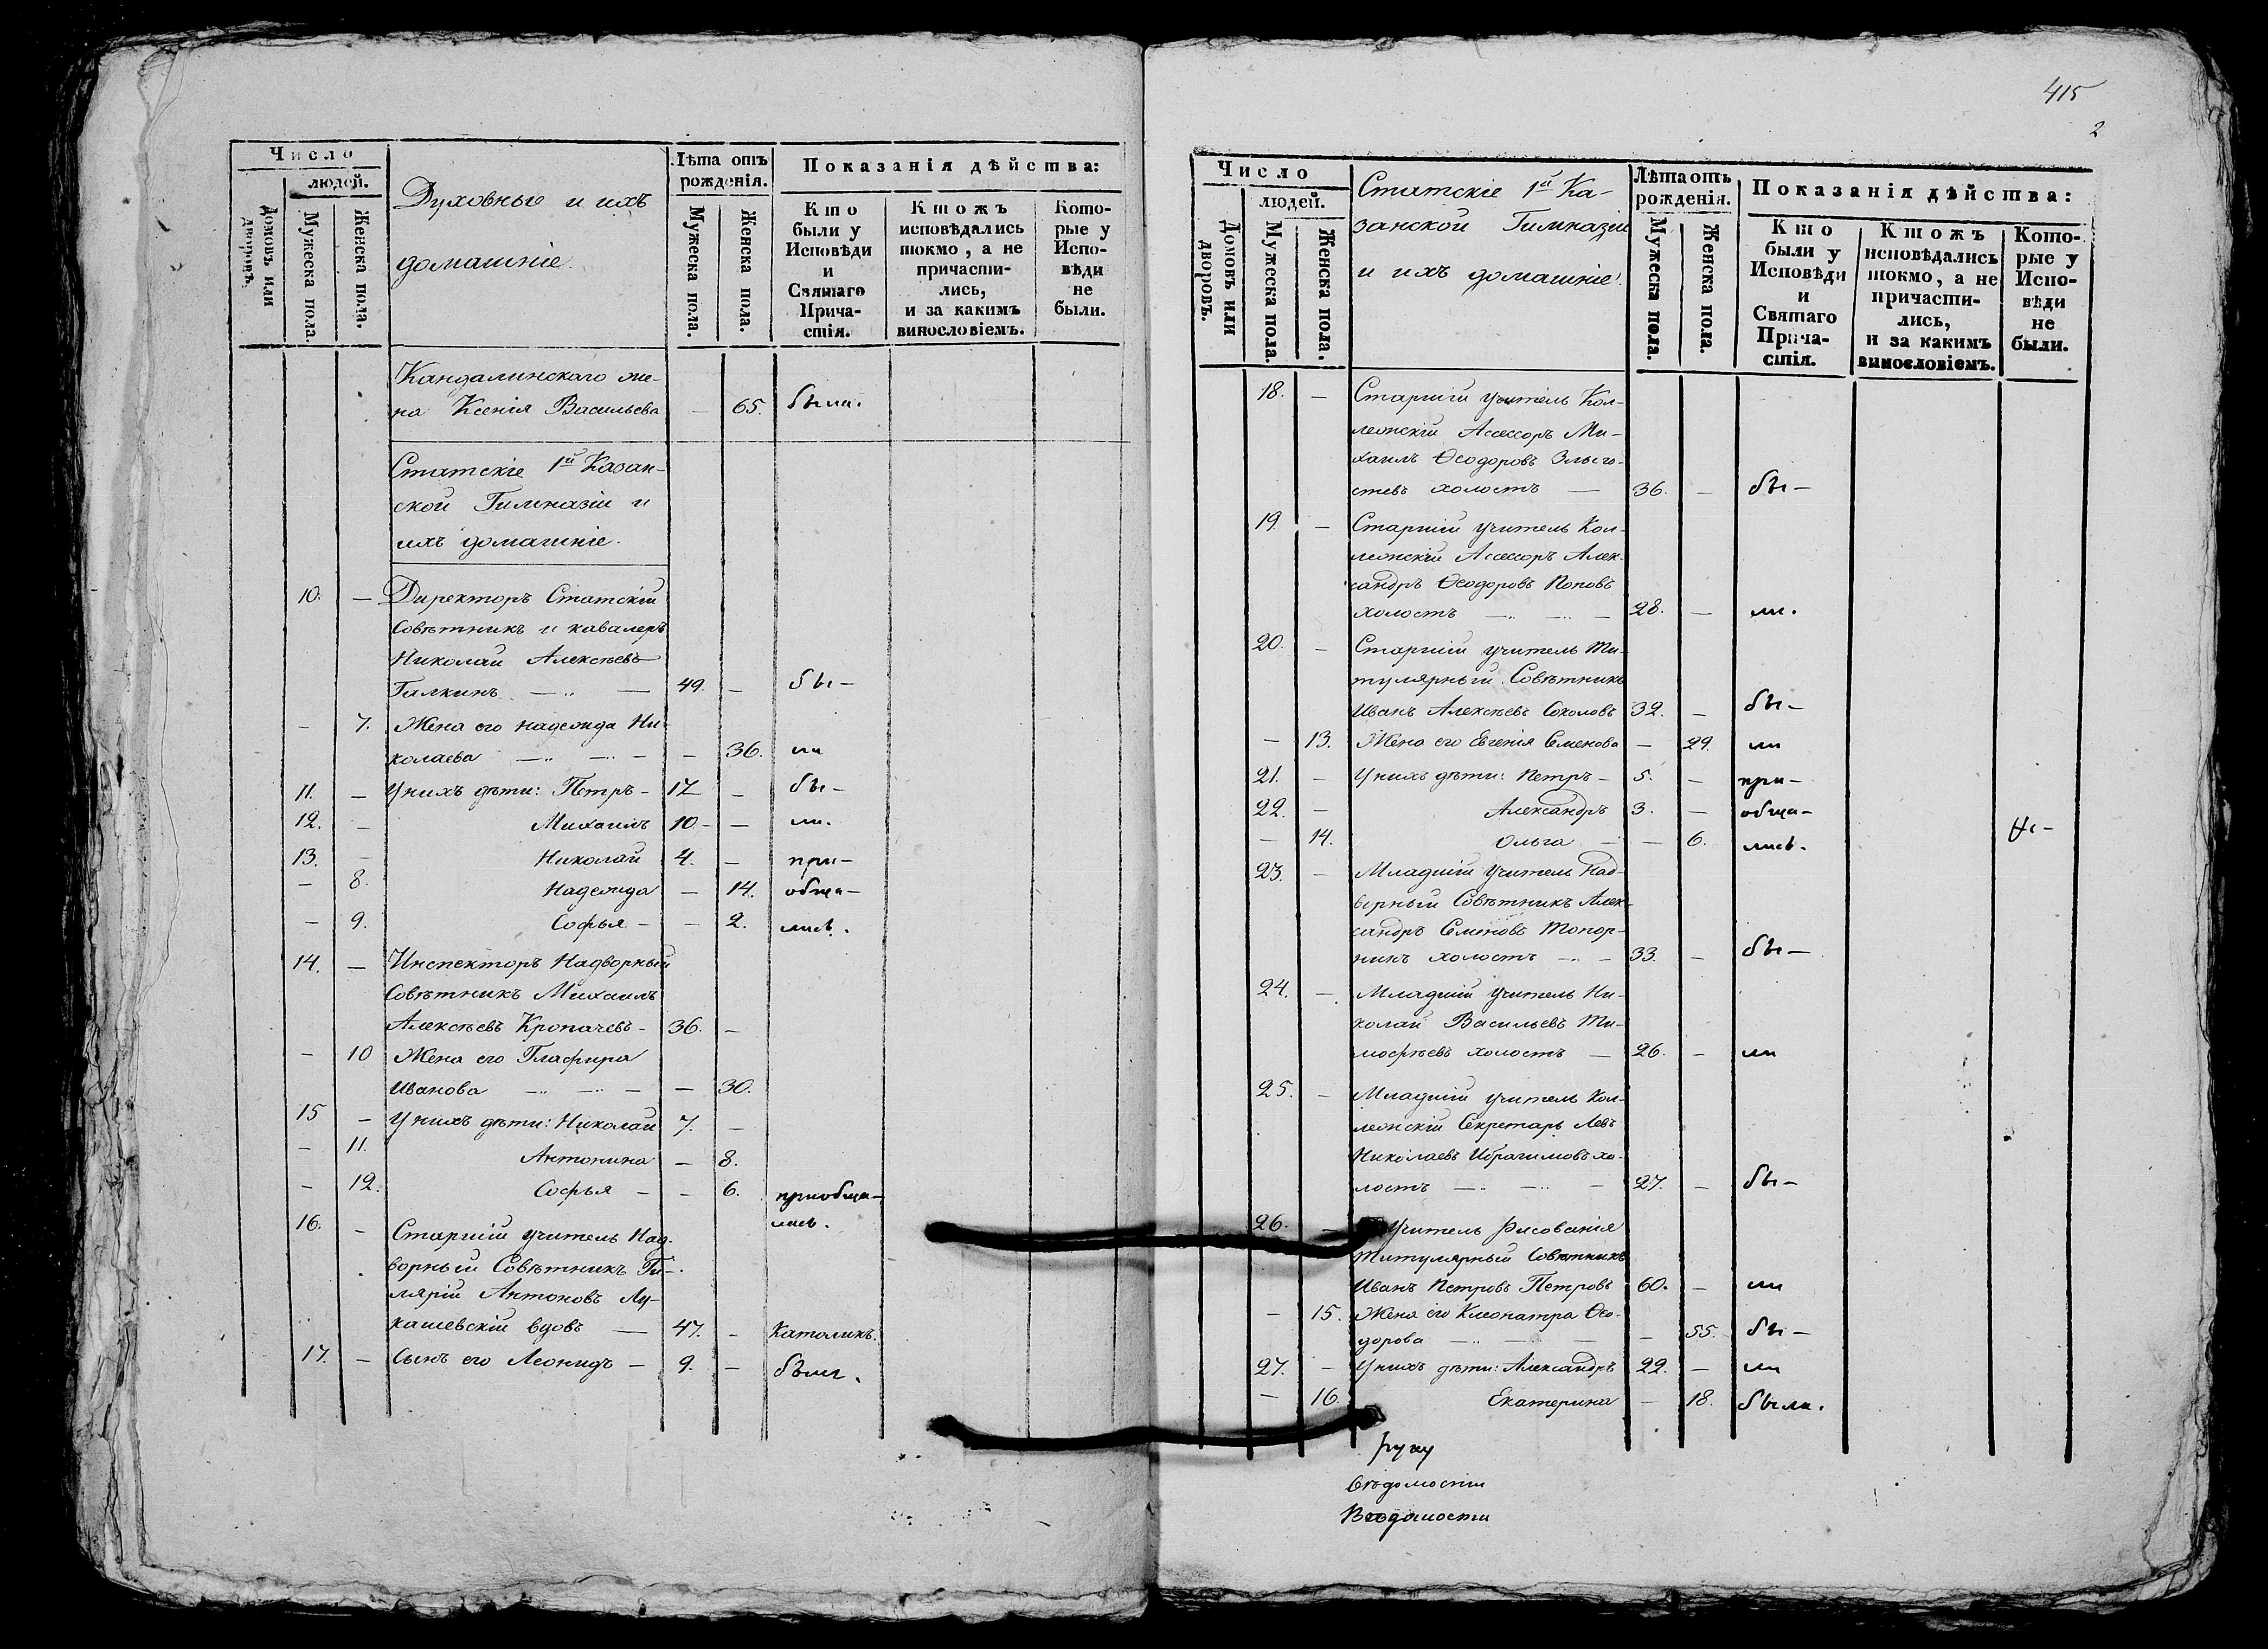 Число
людей.
Домовъ или дворовъ.
Мужеска пола.
Женска пола.
Духовные и ихъ
домашніе.
Лѣта отъ
рожденія.
Мужеска пола.
Женска пола.
Показанія дѣйства:
Кто
были у
Исповѣди
и
Святаго
Прича-
стія.
Ктожъ
исповѣдались
токмо, а не
причасти-
лись,
и за какимъ
винословіемъ.
Кото-
рые у
Испо-
вѣди
не
были.
Кандалинскаго же-
на Ксенія Васильева — 65. была.
Статскіе 1й Казан-
ской Гимназіи и
ихъ домашніе.
10. — Директоръ Статскій
Совѣтникъ и кавалеръ
Николай Алексѣевъ
Галкинъ — 49. — бы-
— 7. Жена его Надежда Ни-
колаева — — 36. ли
11. — У нихъ дѣти: Петръ — 17 — бы-
12. — Михаилъ 10 — — ли.
13. — Николай 4. — при-
— 8. Надежда — 14. обща-
— 9. Софья — — 2. лись.
14. — Инспекторъ Надворный
Совѣтникъ Михаилъ
Алексѣевъ Кропачевъ — 36. —
— 10 Жена его Глафира
Иванова — — — 30.
15 — У нихъ дѣти: Николай 7. —
— 11. Антонина — 8.
— 12. Софья — — 6. приобща-
лись.
16. — Старшій учитель Над-
ворный Совѣтникъ Ги-
лярій Антоновъ Лу-
кашевскій вдовъ — 47. — Католикъ.
17. — Сынъ его Леонидъ — 9. — былъ.
415
2
Число
людей.
Домовъ или дворовъ.
Мужеска пола.
Женска пола.
Статскіе 1й Ка-
занской Гимназіи
и ихъ домашніе.
Лѣта отъ
рожденія.
Мужеска пола.
Женска пола.
Показанія дѣйства:
Кто
были у
Исповѣди
и
Святаго
Прича-
стія.
Ктожъ
исповѣдались
токмо, а не
причасти-
лись,
и за какимъ
винословіемъ.
Кото-
рые у
Испо-
вѣди
не
были.
18. — Старшій учитель Кол-
лежскій Асессоръ Ми-
хаилъ Ѳеодоровъ
холостъ — 36. — бы-
19. — Старшій учитель Кол-
лежскій Асессоръ Алек-
сандръ Ѳеодоровъ Поповъ
холостъ — 28. — ли.
20. — Старшій учитель Ти-
тулярный Совѣтникъ
Иванъ Алексѣевъ Соколовъ 32. — бы-
— 13. Жена его Евгенія Семенова — 29. ли
21. — У нихъ дѣти: Петръ — 5. — при-
22. — Александръ 3. — обща-
— 14. Ольга — — 6. лись.
23. — Младшій учитель Над-
ворный Совѣтникъ Алек-
сандръ Семеновъ Топор-
нинъ холостъ — 33. — бы-
24. — Младшій учитель Ни-
колай Васильевъ Ти-
мофѣевъ холостъ — 26. — ли
25. — Младшій учитель Кол-
лежскій Секретарь Левъ
Николаевъ Ибрагимовъ хо-
лостъ — 27. — бы-
26. — Учитель рисованія
Титулярный Совѣтникъ
Иванъ Петровъ Петровъ 60. — ли
— 15. Жена его Клеопатра Ѳео-
дорова — — 55. бы-
27. — У нихъ дѣти: Александръ 22. — ли
— 16. Екатерина — 18. была.
Вѣдомости
Вѣдомости